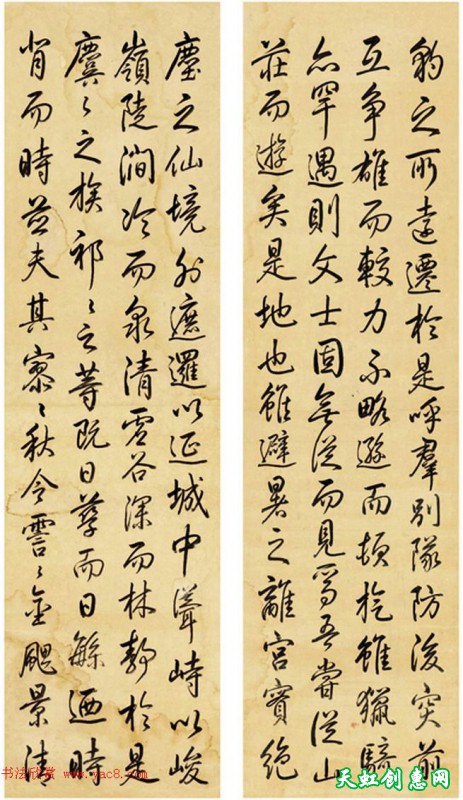 豹之所遠遷於是呼羣別隊防後突前
互争雄而較力不略遜而頓旃雖獵騎
亦罕遇則文士固無從而見焉吾嘗從山
莊而遊矣是地也雖避暑之離宮實絶
塵之仙境外遮邏以延城中聳峙以峻
嶺陡澗冷而泉清虛谷深而林静於是
麌〻之族祁〻之等既日孳而日緐迺時
背而時並夫其寥〻秋令霅〻金飈景清
书法欣赏 www.yac8.com
天虹创惠网